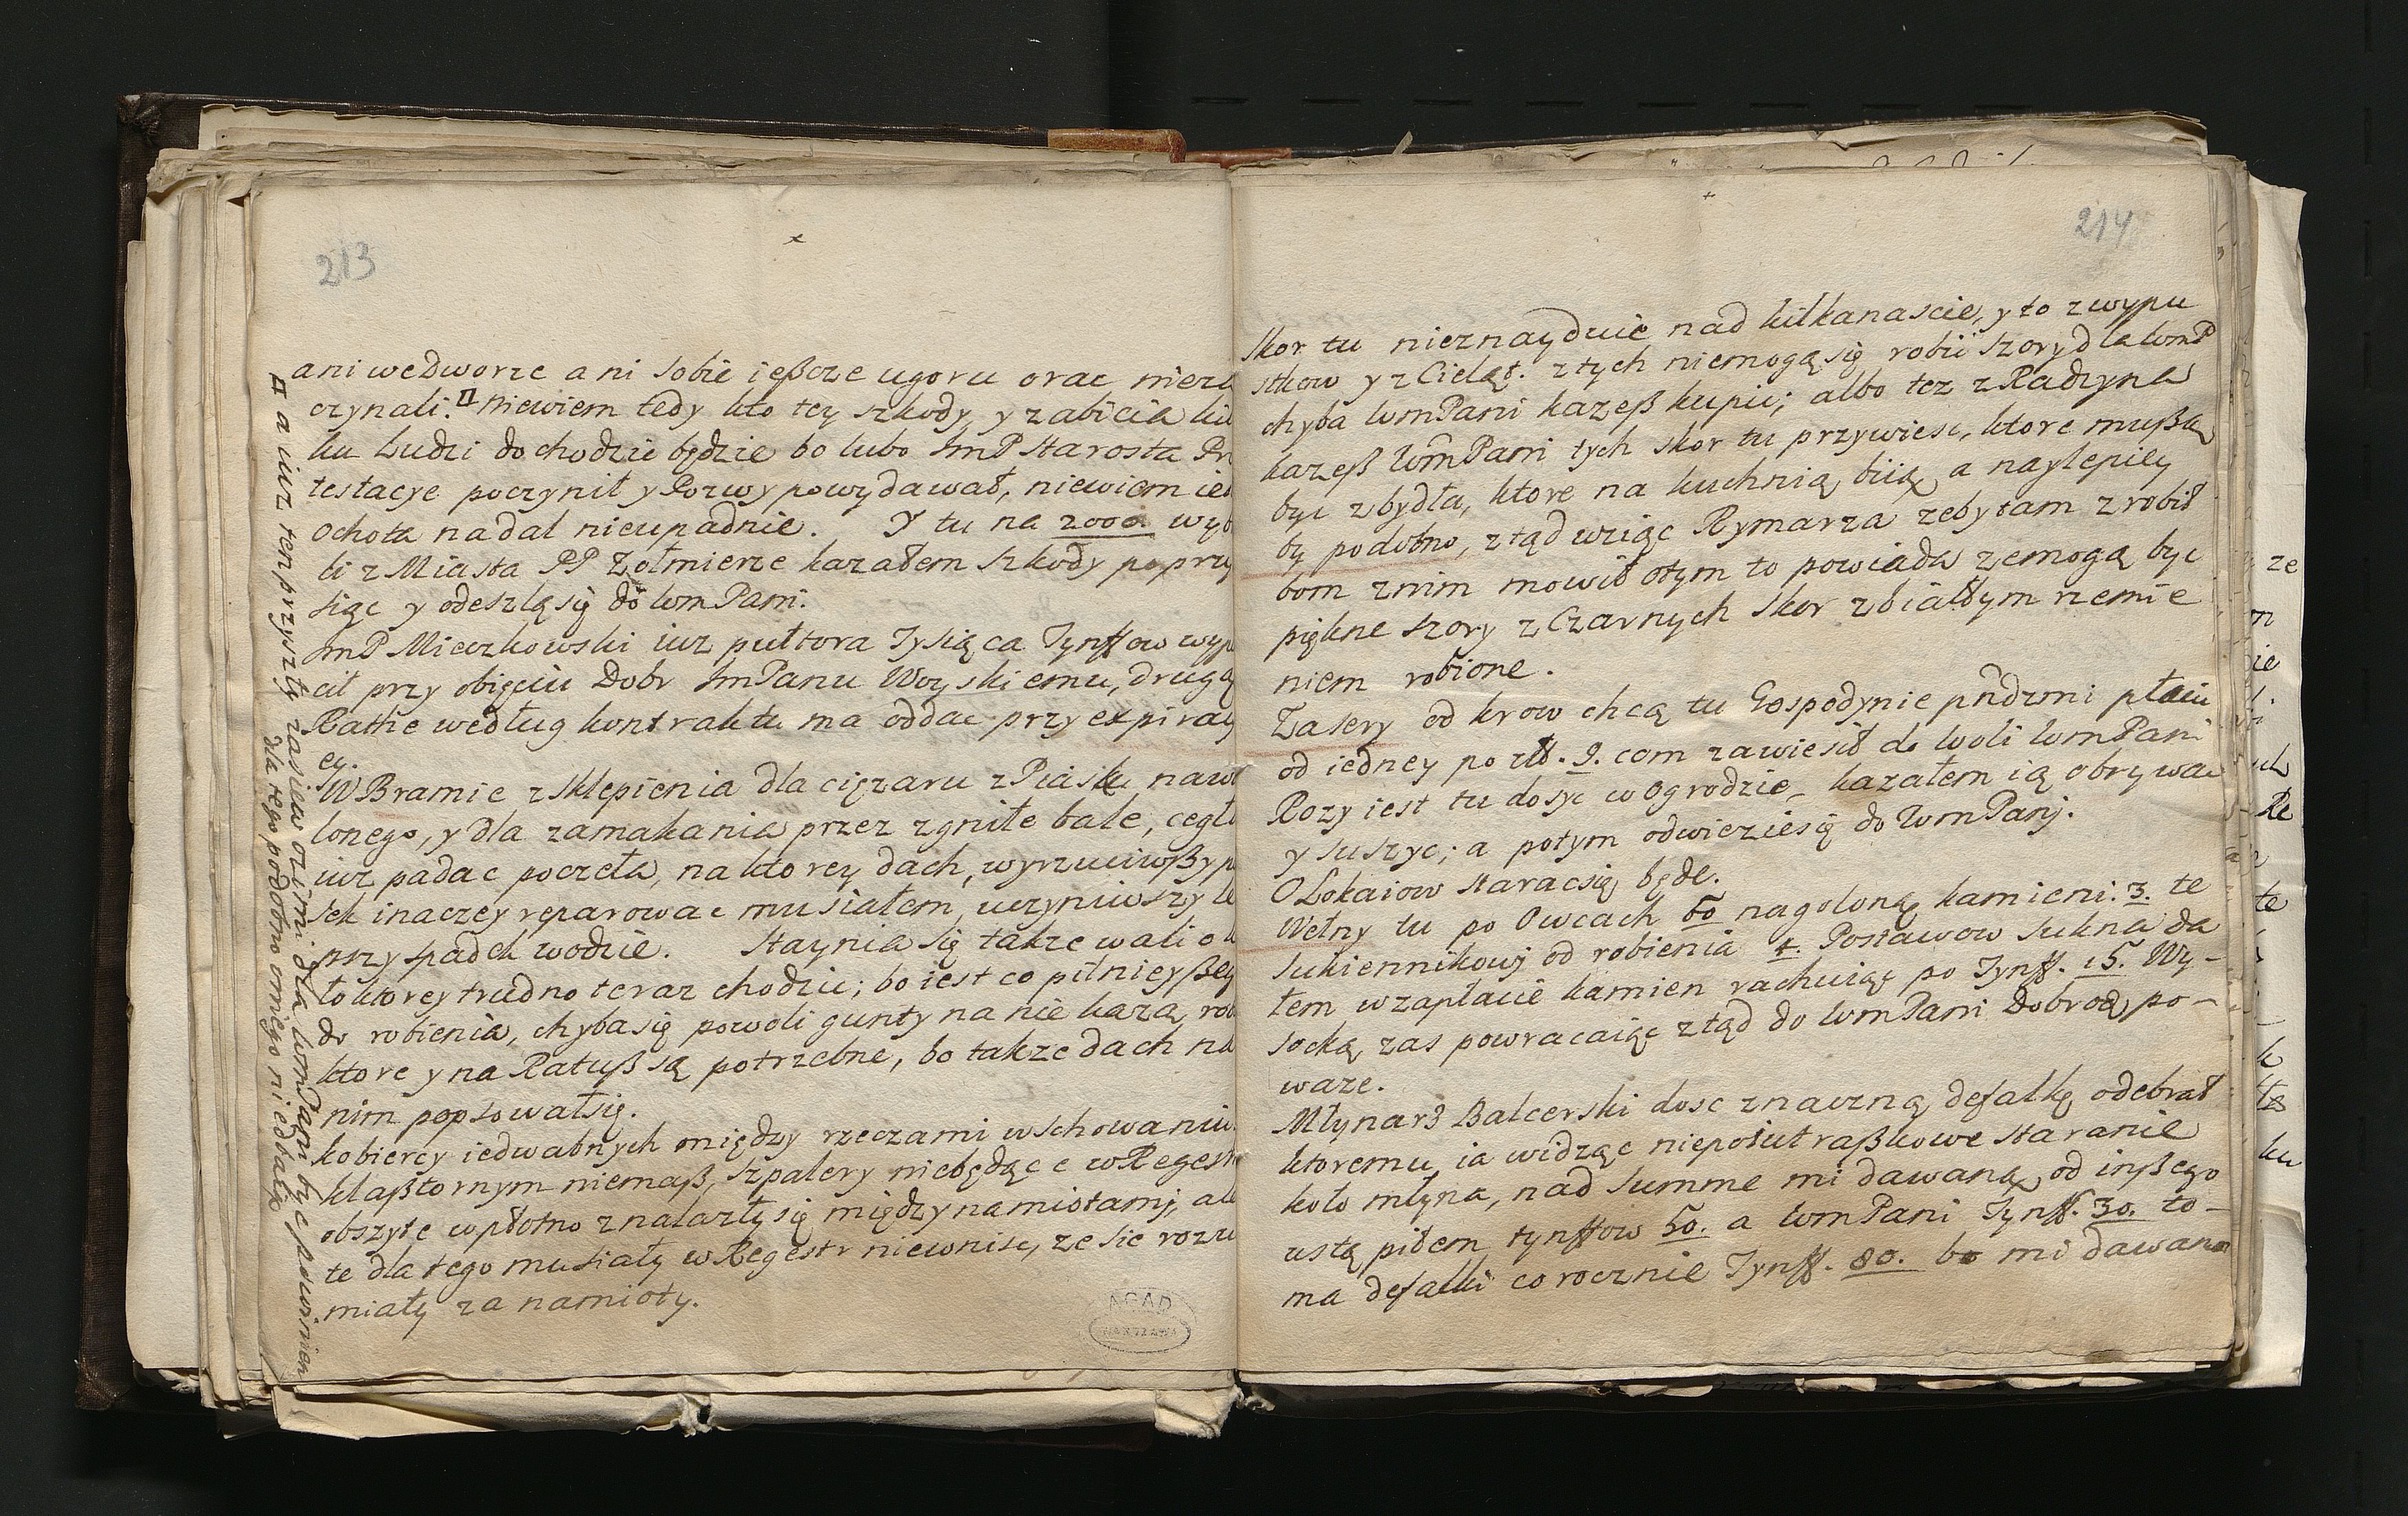 213
ani wedworze ani sobie ießcze ugoru orac nieza
czynali. ¤ Niewiem tedy kto tey szkody, y zabicia kil
ku Ludzi dochodzic będzie bo lubo JmP Starosta Pr
testacye poczynił y Pozwy powydawał, niewiem ie
Ochota nadal nieupadnie. Y tu na 2000. wyb
li z Miasta PP Zołmierze kazałem szkody poprzy
siąc y odeszlą się do WmPani.
JmP Mieczkowski iuz pułtora Tysiąca Tynffow wyp
cił przy obięciu Dobr JmPanu Woyskiemu, drugą
Rathę według kontraktu ma oddac przy expiracy
ey.
W Bramie z Sklepienia dla cięzaru z Piasku nawo
lonego, y dla zamakania przez zgniłe bale, cegła
iuz padac poczeła, na ktorey dach, wyrzuciwßy pi
sek inaczey reparowac musiałem, uczyniwszy le
pszy spadek wodzie. Staynia się takze wali o k
to ktorey trudno teraz chodzic; bo iest co pilnieyßey
do robienia, chyba się powoli gunty na nie kazą rob
ktore y na Ratuß są potrzebne, bo takze dach na
nim popsował się.
Kobiercy iedwabnych między rzeczami w Schowaniu
klaßtornym niemaß, szpalery niebędące w Regestr
obszyte w płotno znalazły się między namiotamj, ale
te dla tego musiały w Regestr niewnisc, ze sie rozu
miały za namioty.
¤ a iuz ten przyszły zasiew ozimi dla WmPani byc powinien
dla tego podobno oniego niedbaią
ACAD
WARSZAWA
214
skor tu nieznayduie nad kilkanascie, y to z wypu
stkow y z Cieląt. z tych niemogą się robic szory dla WmP
chyba WmPani kazeß kupic; albo tez z Radzyna
kazeß WmPani tych skor tu przywiesc, ktore mußą
byc z bydła, ktore na kuchnią biią, a naylepiey
by podobno, ztąd wziąc Rymarza zeby tam zrobił
bom znim mowił otym to powiada ze mogą byc
piękne szory z Czarnych Skor z białym rzemie
niem robione.
Za sery od krow chcą tu Gospodynie pndzmi płacic
od iedney po zł. 9. com zawiesił do woli WmPani
Rozy iest tu dosyc w Ogrodzie, kazałem ią obrywac
y suszyc; a potym odwieziesię do WmPanj.
O Lokaiow staracsię będę.
Wełny tu po Owcach 50 nagoloną kamieni. 3. te
Sukiennikowj od robienia 4. Postawow Sukna da
łem wzapłacie kamien rachuiąc po Tynff. 15. Wy-
socką zas powracaiąc ztąd do WmPani Dobrod po-
waze.
Młynarz Balcerski dosc znaczną defalkę odebrał
ktoremu ia widząc nieposiutraßkowe staranie
koło młyna, nad summe mi dawaną od inßego
ustąpiłem tynffow 50. a WmPani Tynff. 30. to-
ma defalki corocznie Tynff. 80. bo mi dawano